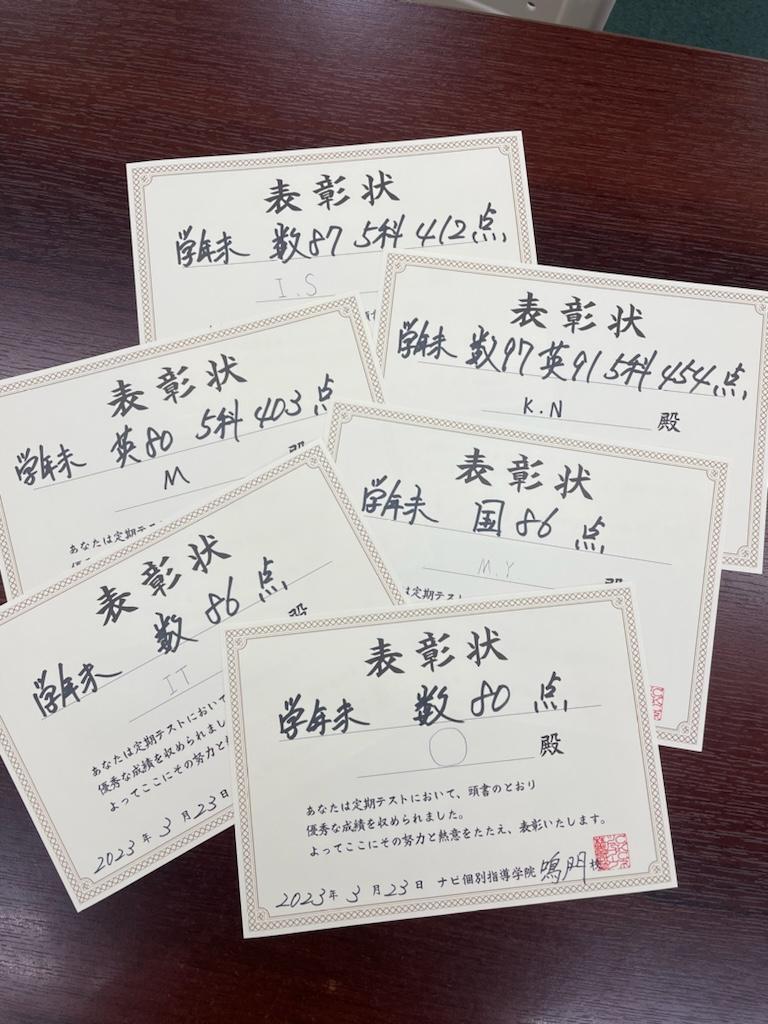 表彰状
学年末 数87 5科 412点
I.S
表彰状
学年末 数97 英91 5科 454点
K.N 殿
表彰状
学年末 英80 5科 403点
M 殿
あなたは定期テス
表彰状
学年末 国86点
M.Y 殿
は定期テスト
表彰状
学年末 数86点
IT 殿
あなたは定期テストにおいて
優秀な成績を収められまし
よってここにその努力と
2023年3月23日
表彰状
学年末 数80点
○ 殿
あなたは定期テストにおいて、頭書のとおり
優秀な成績を収められました。
よってここにその努力と熱意をたたえ、表彰いたします。
2023年3月23日 ナビ個別指導学院 鳴門校